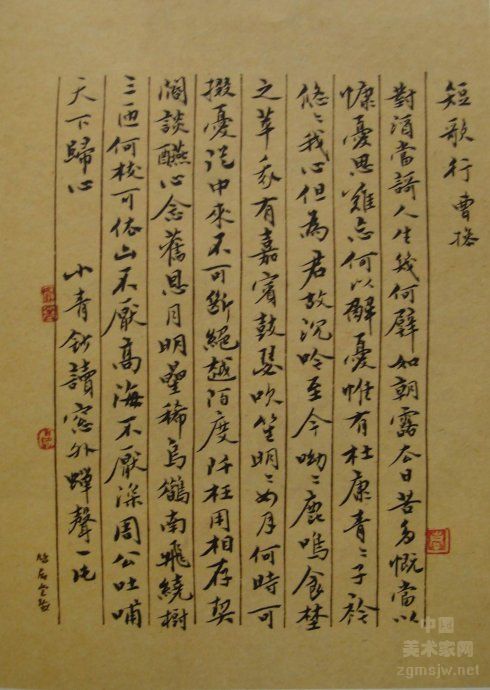 短歌行 曹操
對酒當謌人生幾何譬如朝露去日苦多慨當以
慷憂思難忘何以解憂惟有杜康青〻子衿
悠〻我心但為君故沉吟至今呦〻鹿鳴食埜
之苹我有嘉賓鼓瑟吹笙明〻如月何時可
掇憂從中來不可斷絕越陌度阡枉用相存契
闊談醼心念舊恩月明星稀烏鵲南飛繞樹
三匝何枝可依山不厭高海不厭深周公吐哺
天下歸心 小青鈔讀窗外蟬聲一片
中国
美术家网
zgmsjw.net